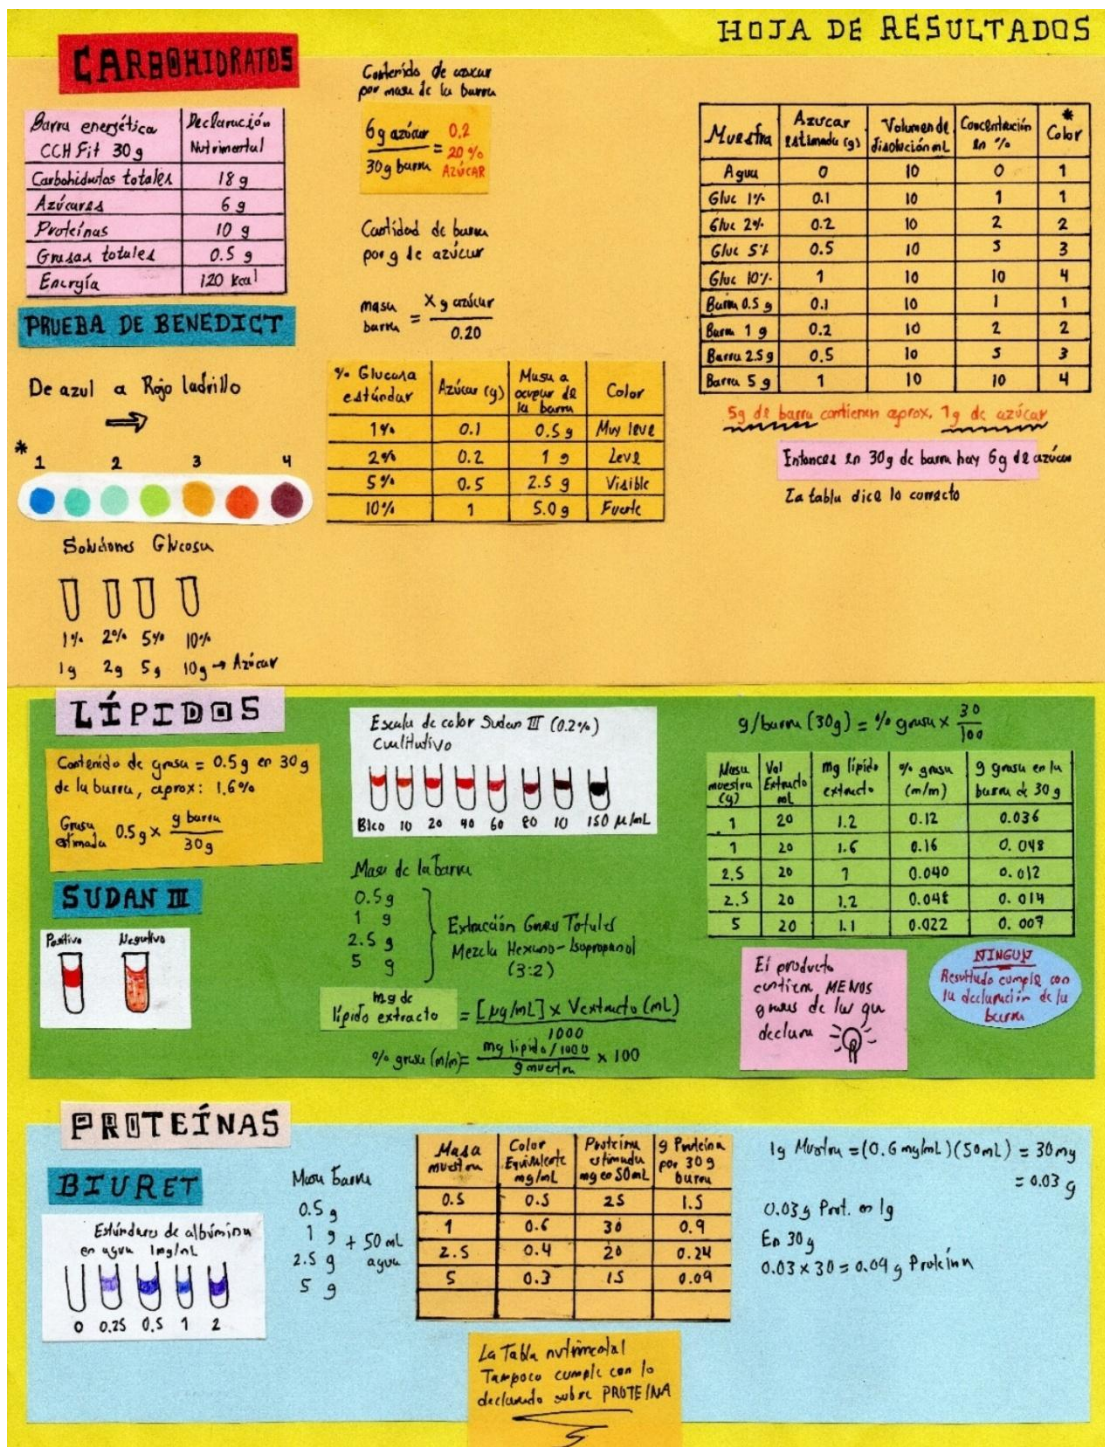 HOJA DE RESULTADOS
CARBOHIDRATOS
Barra energética CCH Fit 30 g | Declaración Nutrimental
Carbohidratos totales | 18 g
Azúcares | 6 g
Proteínas | 10 g
Grasas totales | 0.5 g
Energía | 120 kcal
PRUEBA DE BENEDICT
De azul a Rojo ladrillo
* 1 2 3 4
Soluciones Glucosa
1% 2% 5% 10%
1g 2g 5g 10g → Azúcar
Contenido de azucar
por masa de la barra
6g azúcar / 30g barra = 0.2
20%
AZÚCAR
Cantidad de barra
por g de azúcar
masa barra = X g azúcar / 0.20
% Glucosa estándar | Azúcar (g) | Masa a ocupar de la barra | Color
1% | 0.1 | 0.5 g | Muy leve
2% | 0.2 | 1 g | Leve
5% | 0.5 | 2.5 g | Visible
10% | 1 | 5.0 g | Fuerte
Muestra | Azucar estimada (g) | Volumen de disolución mL | Concentración en % | * Color
Agua | 0 | 10 | 0 | 1
Gluc 1% | 0.1 | 10 | 1 | 1
Gluc 2% | 0.2 | 10 | 2 | 2
Gluc 5% | 0.5 | 10 | 5 | 3
Gluc 10% | 1 | 10 | 10 | 4
Barra 0.5 g | 0.1 | 10 | 1 | 1
Barra 1 g | 0.2 | 10 | 2 | 2
Barra 2.5 g | 0.5 | 10 | 5 | 3
Barra 5 g | 1 | 10 | 10 | 4
5g de barra contienen aprox. 1g de azúcar
Entonces en 30g de barra hay 6g de azúcar
La tabla dice lo correcto
LÍPIDOS
Contenido de grasa = 0.5 g en 30 g
de la barra, aprox: 1.6%
Grasa estimada 0.5 g x g barra / 30 g
SUDAN III
Positivo Negativo
Escala de color Sudan III (0.2%)
Cualitativo
Blco 10 20 40 60 80 10 150 µ/mL
Masa de la barra
0.5 g
1 g
2.5 g
5 g
Extracción Grasas Totales
Mezcla Hexano-Isopropanol
(3:2)
mg de lípido extracto = [µg/mL] x Vextracto (mL) / 1000
% grasa (m/m) = mg lípido/1000 / g muestra x 100
g/barra (30g) = % grasa x 30/100
Masa muestra (g) | Vol Extracto mL | mg lípido extracto | % grasa (m/m) | g grasa en la barra de 30 g
1 | 20 | 1.2 | 0.12 | 0.036
1 | 20 | 1.6 | 0.16 | 0.048
2.5 | 20 | 1 | 0.040 | 0.012
2.5 | 20 | 1.2 | 0.048 | 0.014
5 | 20 | 1.1 | 0.022 | 0.007
El producto
contiene MENOS
grasas de las que
declara
NINGUN
Resultado cumple con
la declaración de la
barra
PROTEÍNAS
BIURET
Estándares de albúmina
en agua 1mg/mL
0 0.25 0.5 1 2
Masa barra
0.5 g
1 g
2.5 g
5 g
+ 50 mL
agua
Masa muestra | Color Equivalente mg/mL | Proteína estimada mg en 50mL | g Proteína por 30 g barra
0.5 | 0.5 | 25 | 1.5
1 | 0.6 | 30 | 0.9
2.5 | 0.4 | 20 | 0.24
5 | 0.3 | 15 | 0.09
1g Muestra = (0.6 mg/mL)(50mL) = 30mg
= 0.03 g
0.03 g Prot. en 1g
En 30 g
0.03 x 30 = 0.09 g Proteína
La Tabla nutrimental
Tampoco cumple con lo
declarado sobre PROTEÍNA